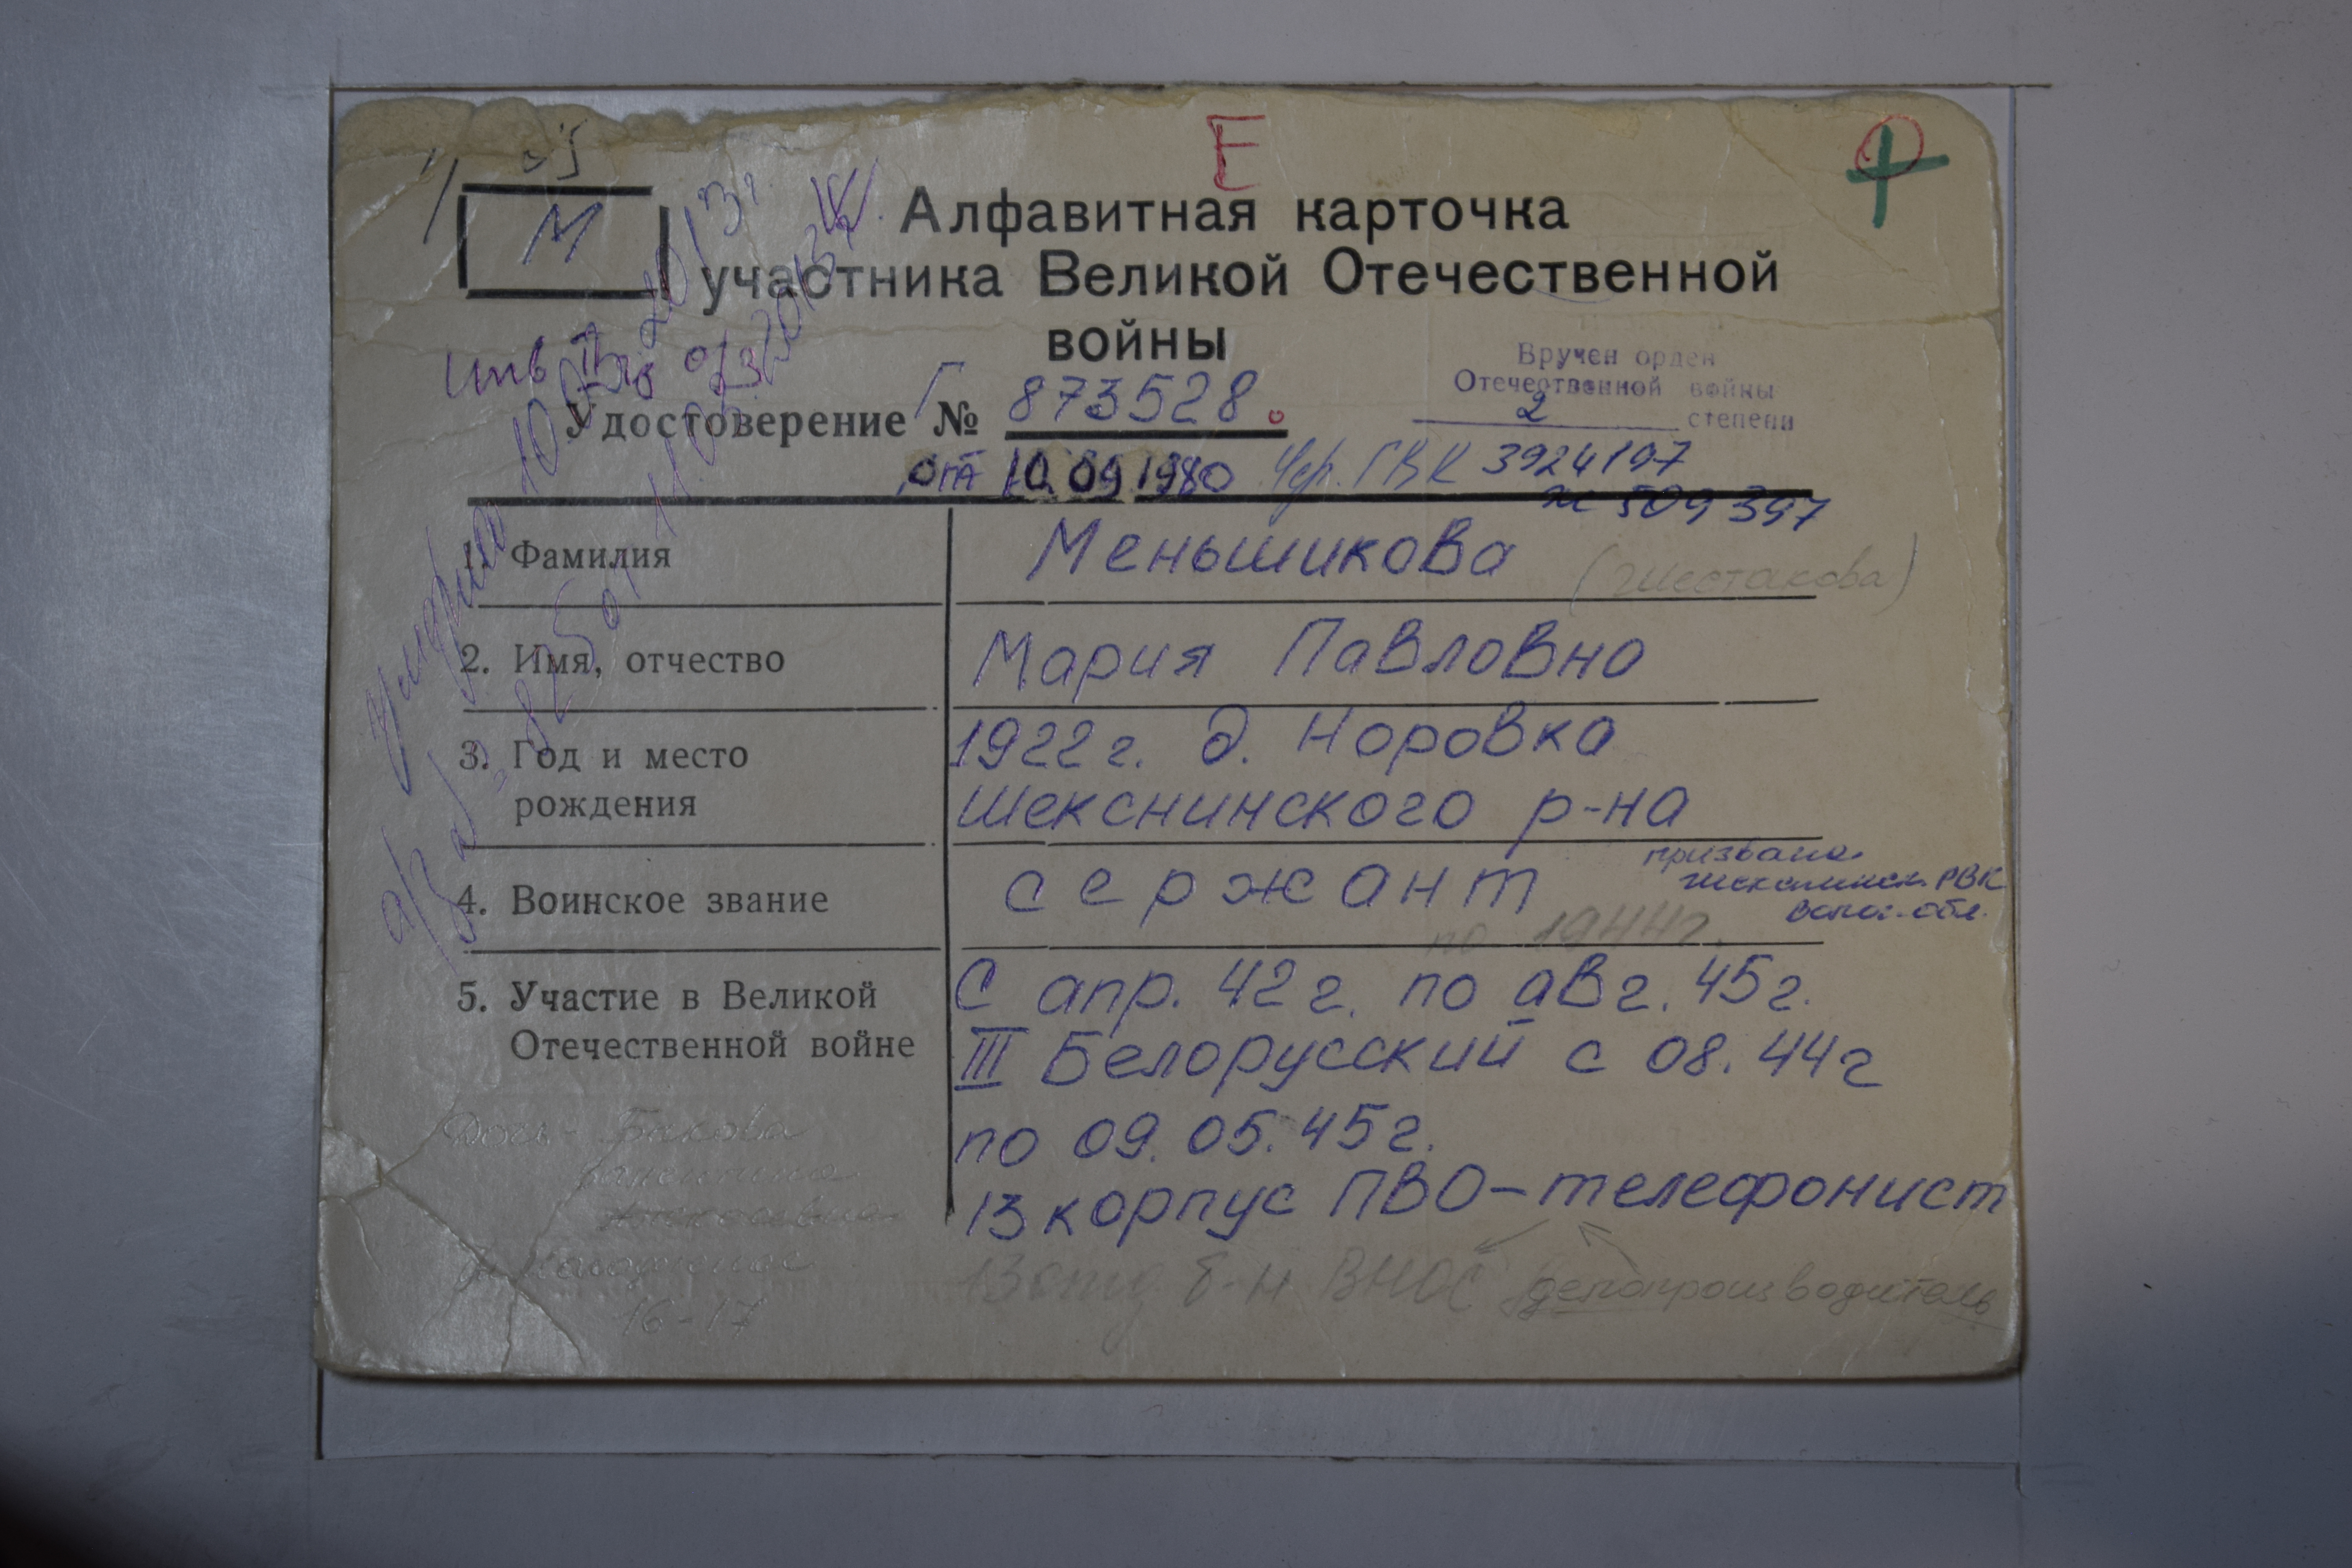 Е
М
Алфавитная карточка
участника Великой Отечественной
войны
Вручен орден
Отечественной войны
2 степени
Удостоверение Г № 873528.
от 10.09.1980 Чер. ГВК 3924197
509397
1. Фамилия Меньшикова (Шестакова)
2. Имя, отчество Мария Павловна
3. Год и место 1922 г. д. Норовка
рождения Шекснинского р-на
призвана
Шекснинск. РВК
Волог. обл.
4. Воинское звание сержант
по 1944 г.
5. Участие в Великой С апр. 42 г. по авг. 45 г.
Отечественной войне III Белорусский с 08.44 г
по 09.05.45 г.
13 корпус ПВО – телефонист
13 отд б-н ВНОС делопроизводитель
Дочь - Бакова
Валентина
16-17
умерла 10.03.2013 г.
а/з 11.03.2013 г.
инв II гр